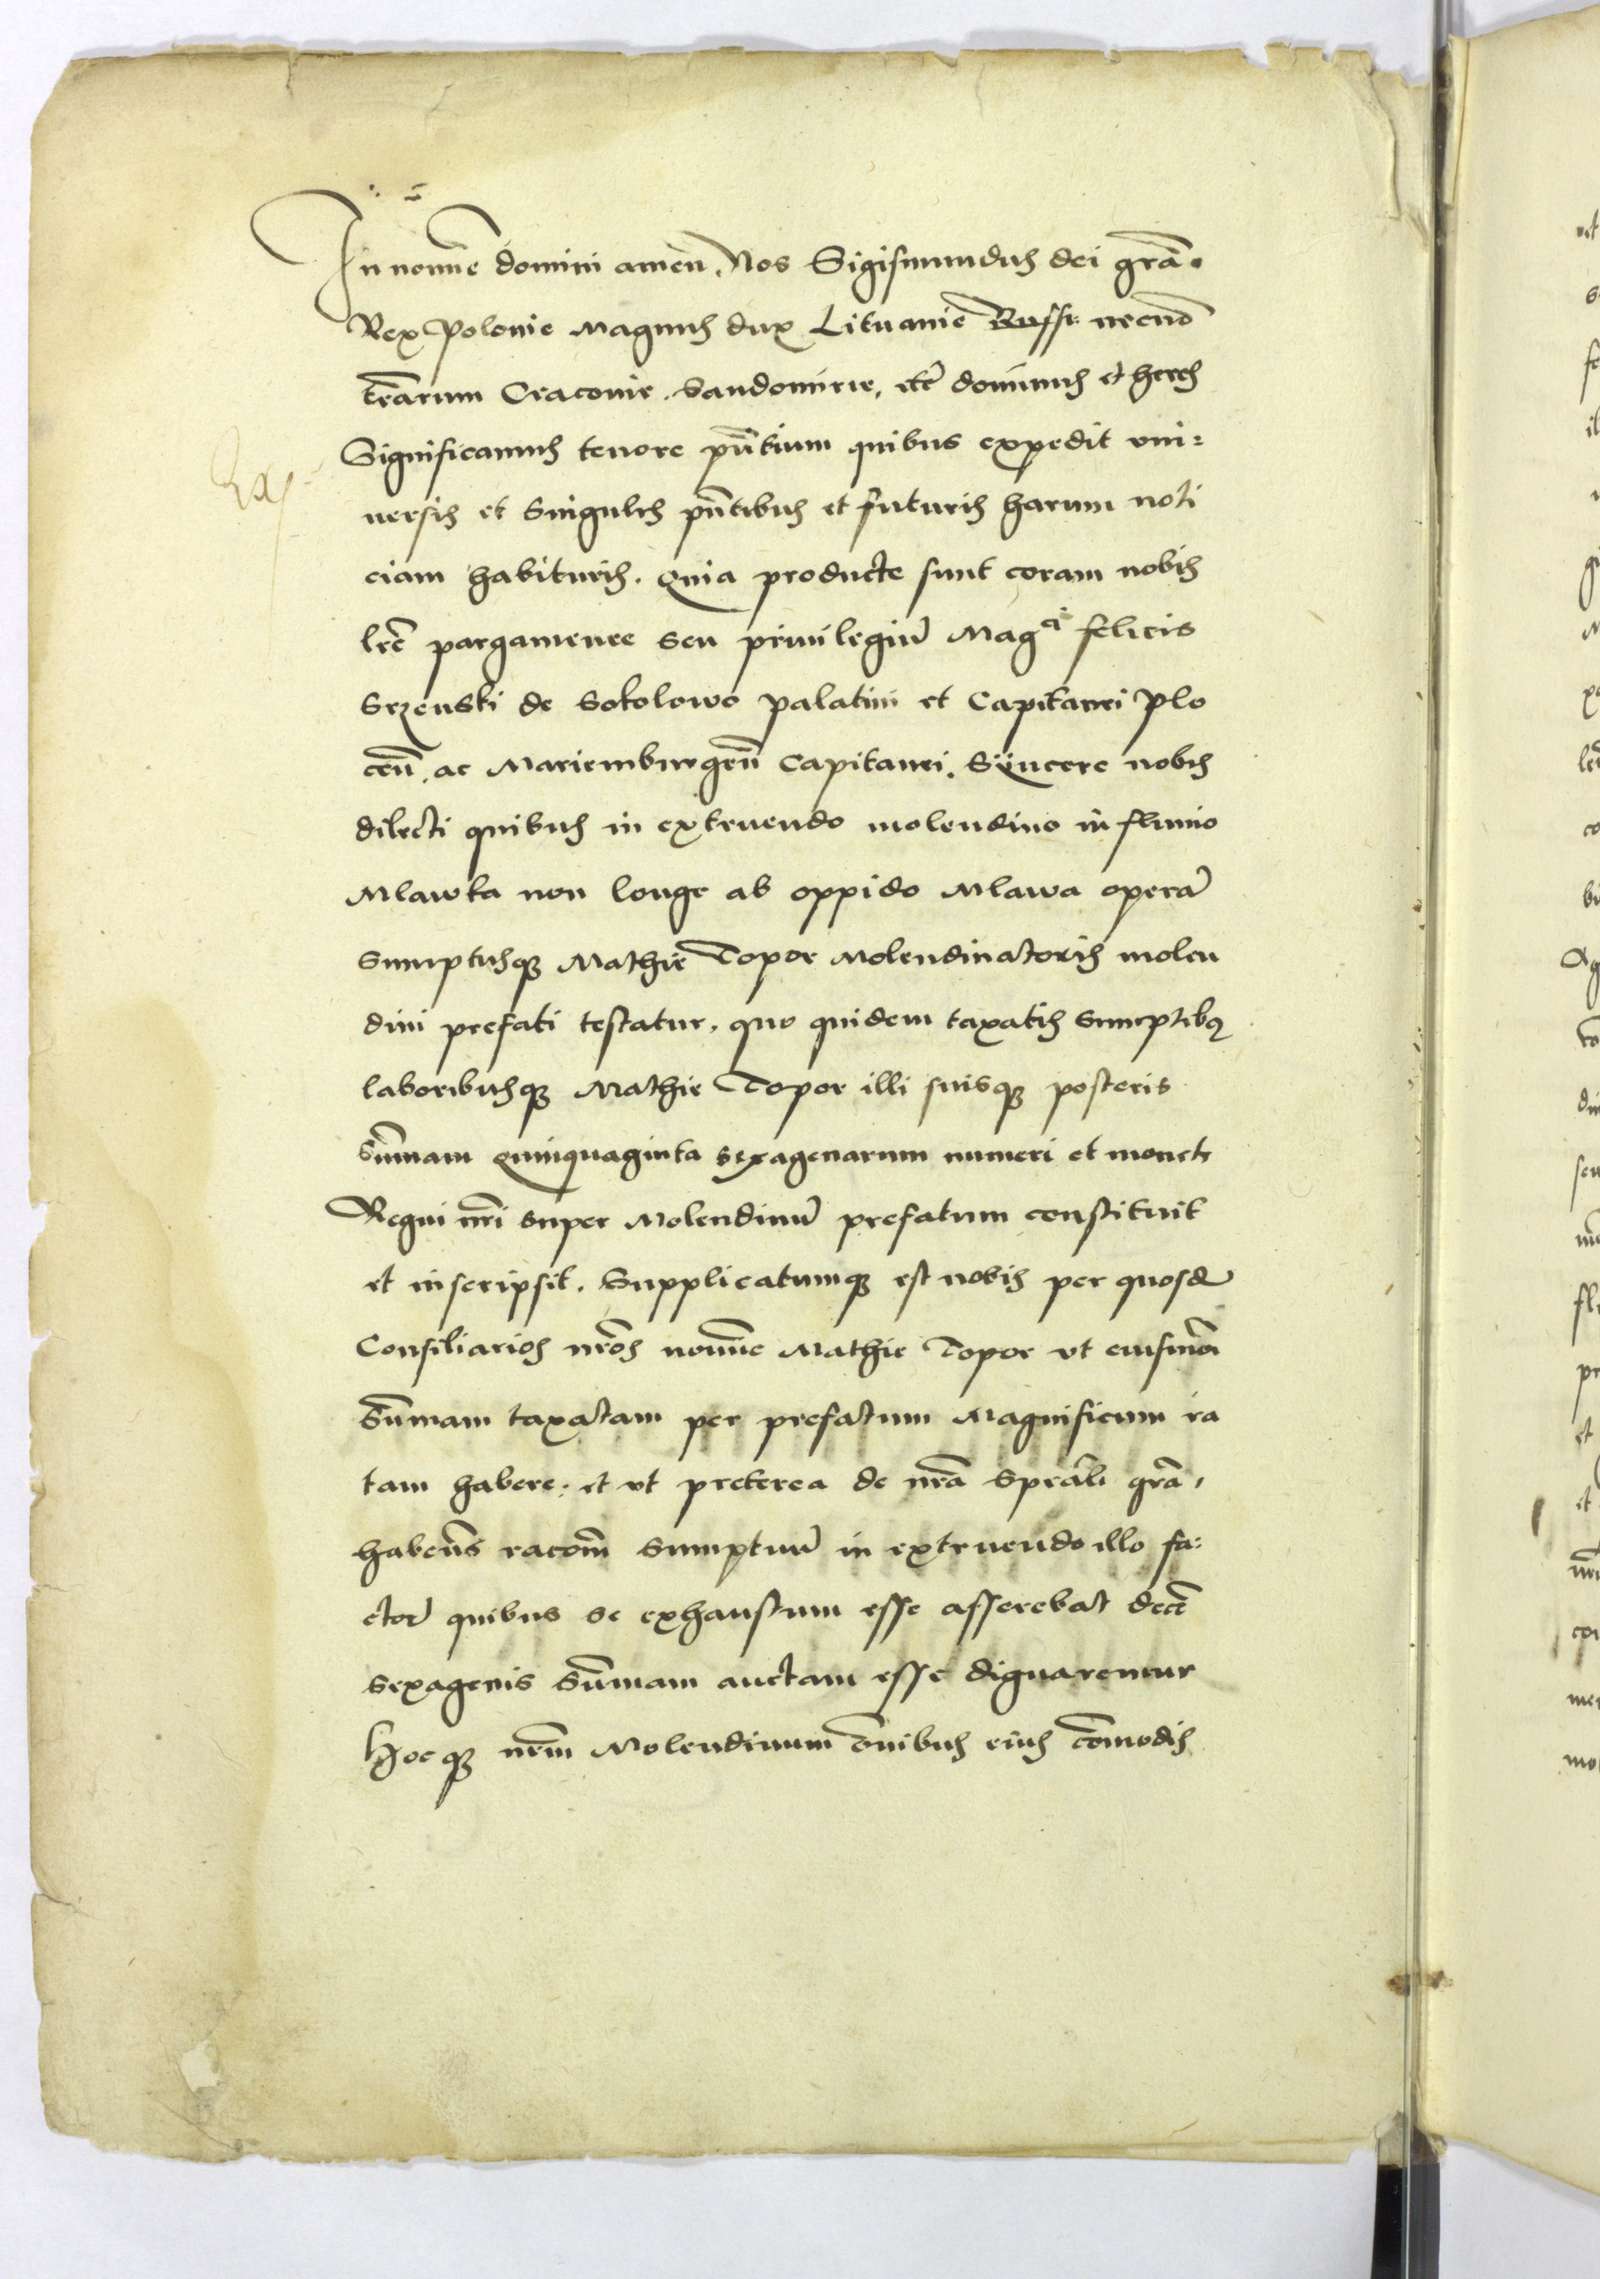 In nomīe domini amen. Nos Sigismundus dei grā.
Rex Polonie Magnus dux Lituanie Russi necnō
terrarum Cracovie. Sandomirie, etc̄ dominus et heres
Significamus tenore pn̄tium quibus expedit vni=
uersis et singulis pn̄tibus et futuris harum noti
ciam habituris. Quia producte sunt coram nobis
lr̄e pargamenee seu priuilegiū Magci felicis
Srzenski de Sokolowo palatini et Capitanei plo
cen̄. ac Mariemburgen̄ Capitanei. Syncere nobis
dilecti quibus in extruendo molendino in fluuio
Mlawka non longe ab oppido Mlawa operā
sumptusq; Mathie Topor Molendinatoris molen
dini prefati testatur. quo quidem taxatis sumptibq
laboribusq; Mathie Topor illi suisq; posteris
sūmam quinquaginta sexagenarum numeri et monete
Regni nr̄i super Molendinū prefatum constituit
et inscripsit. Supplicatumq; est nobis per quosd
Consiliarios nr̄os nomīe Mathie Topor vt eiusmōi
sūmam taxatam per prefatum Magnificum ra
tam habere. et vt preterea de nr̄a sprāli grā,
haben̄s racōm sumptuū in extruendo illo fa=
ctor quibus se exhaustum esse asserebat decē
sexagenis sūmam auctam esse dignaremur
Hocq; nr̄m Molendinum ōnibus eius cōmodis